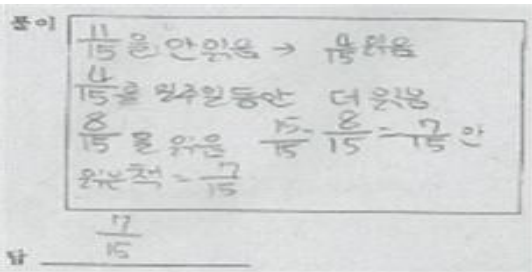 풀이
11/15을 안 읽음 → 4/15 읽음
4/15를 일주일 동안 더 읽음
8/15를 읽음 15/15 - 8/15 = 7/15 안
읽은 책 = 7/15
답 7/15